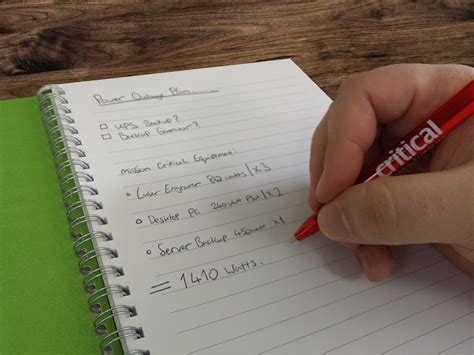 Power Outage Plan
UPS Backup?
Backup Generator?
Mission Critical Equipment:
Laser Engraver 80 watts / x3
Desktop PC 240 Watt PSU / x2
Server Backup 450watt x1
= 1410 Watts.
critical